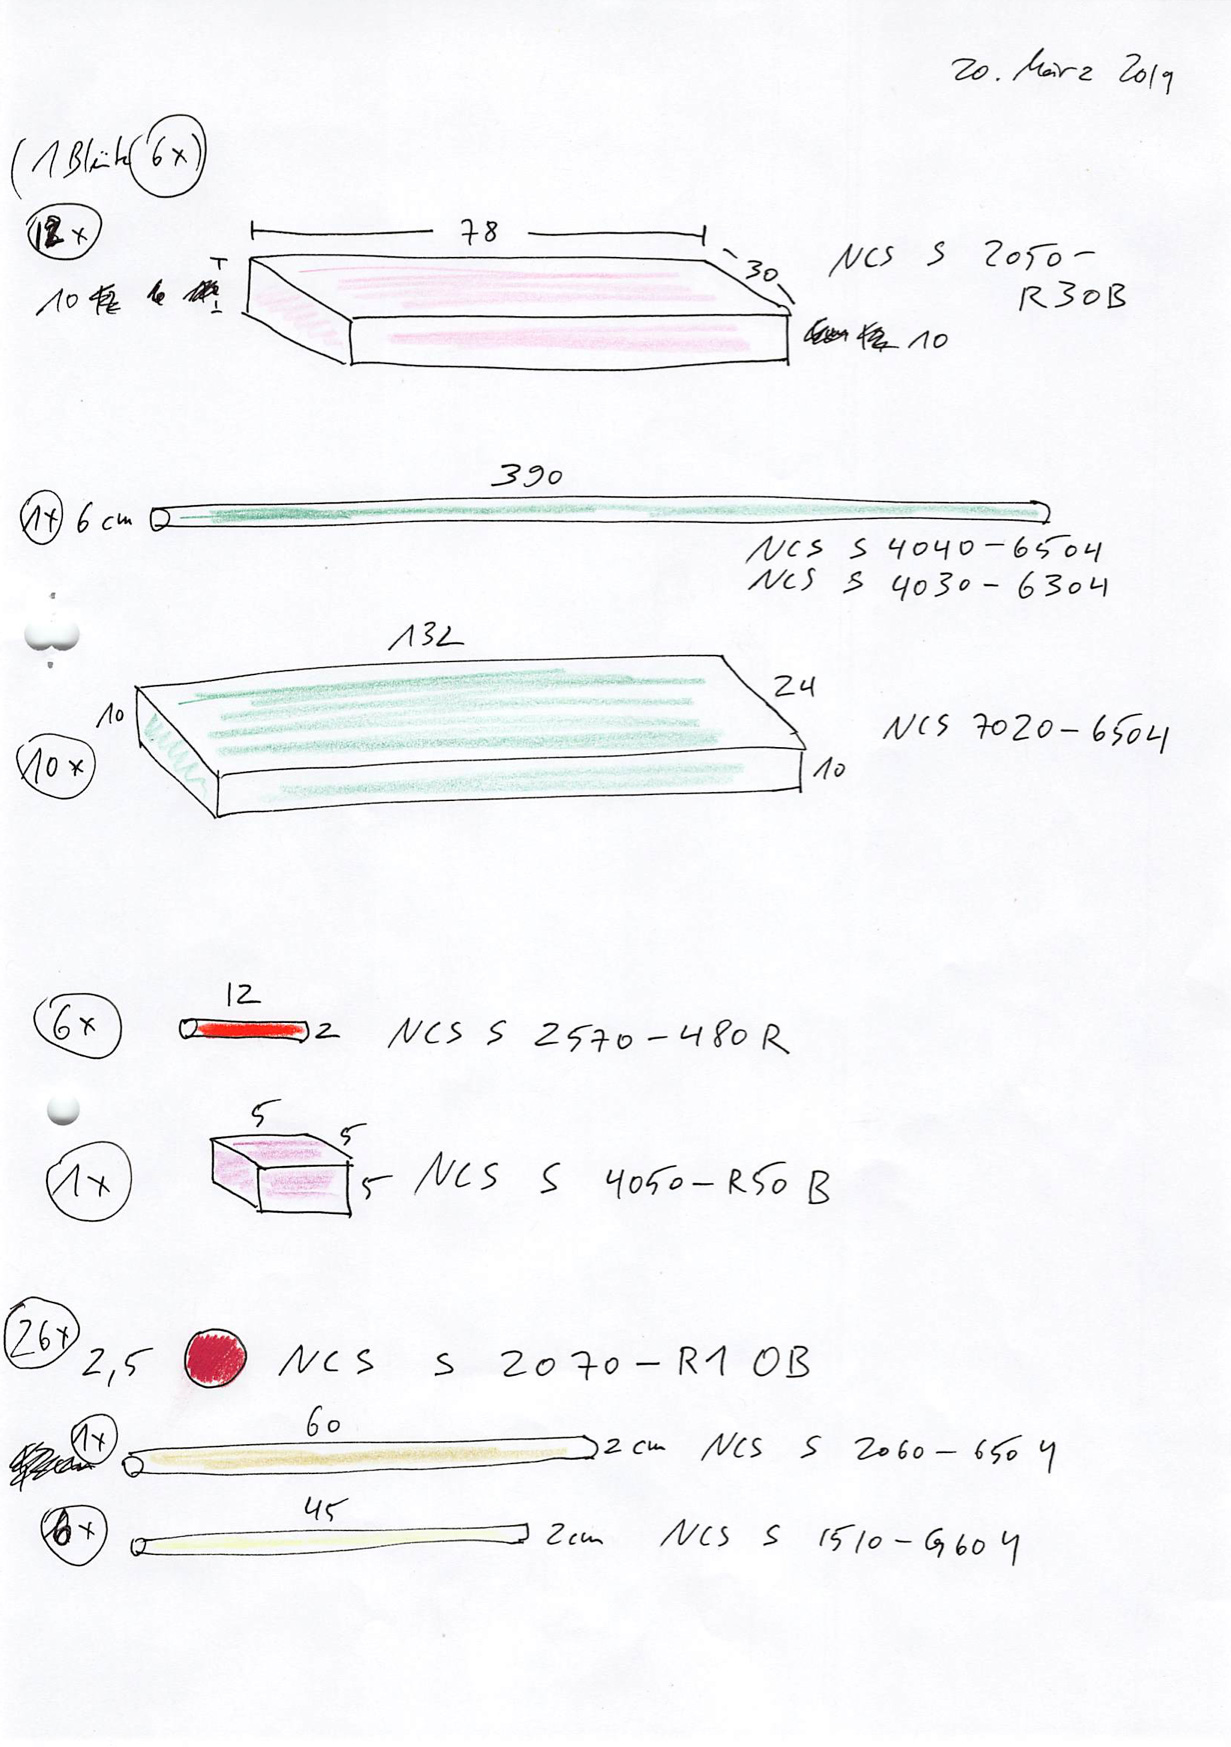 20. März 2019
(1 Blüte (6x)
12x
78
30
NCS S 2050-
R30B
10
10
390
1x 6 cm
NCS S 4040-G50Y
NCS S 4030-G30Y
132
24
10
NCS 7020-G50Y
10x
10
12
6x
2 NCS S 2570-Y80R
5
5
1x
5 NCS S 4050-R50B
26x
2,5 NCS S 2070-R10B
60
1x
2 cm NCS S 2060-G50Y
45
6x
2cm NCS S 1510-G60Y